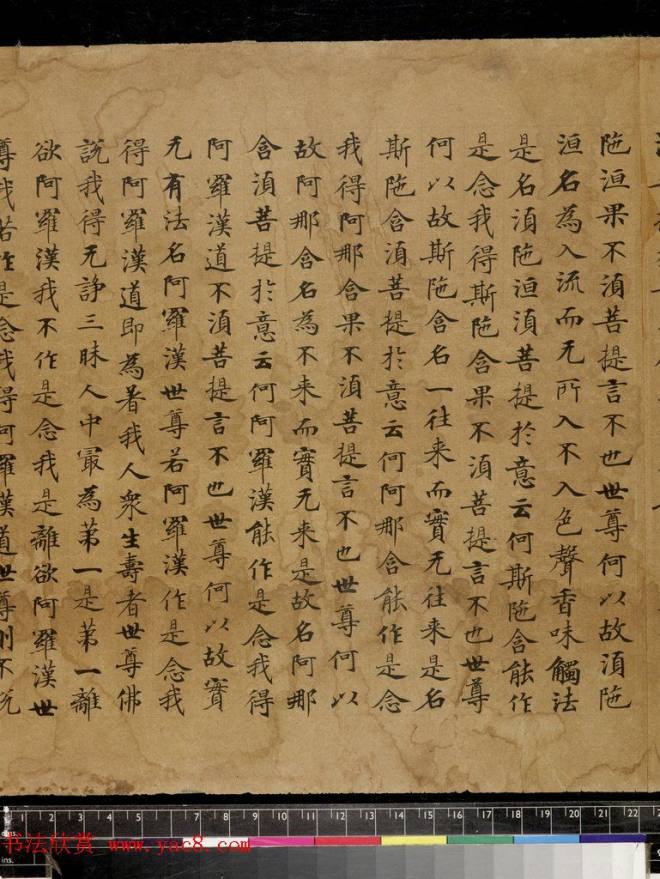 陁洹果不湏菩提言不也世尊何以故湏陁
洹名為入流而无所入不入色聲香味觸法
是名湏陁洹湏菩提於意云何斯陁含能作
是念我得斯陁含果不湏菩提言不也世尊
何以故斯陁含名一往来而實无往来是名
斯陁含湏菩提於意云何阿那含能作是念
我得阿那含果不湏菩提言不也世尊何以
故阿那含名為不来而實无来是故名阿那
含湏菩提於意云何阿羅漢能作是念我得
阿羅漢道不湏菩提言不也世尊何以故實
无有法名阿羅漢世尊若阿羅漢作是念我
得阿羅漢道即為著我人衆生壽者世尊佛
說我得无諍三昧人中冣為苐一是苐一離
欲阿羅漢我不作是念我是離欲阿羅漢世
尊我若作是念我得阿羅漢道世尊則不說
1 2 3 4 5 6 7 8 9 10 11 12 13 14 15 16 17 18 19 20 21 22
ins.
书法欣赏 www.yac8.com